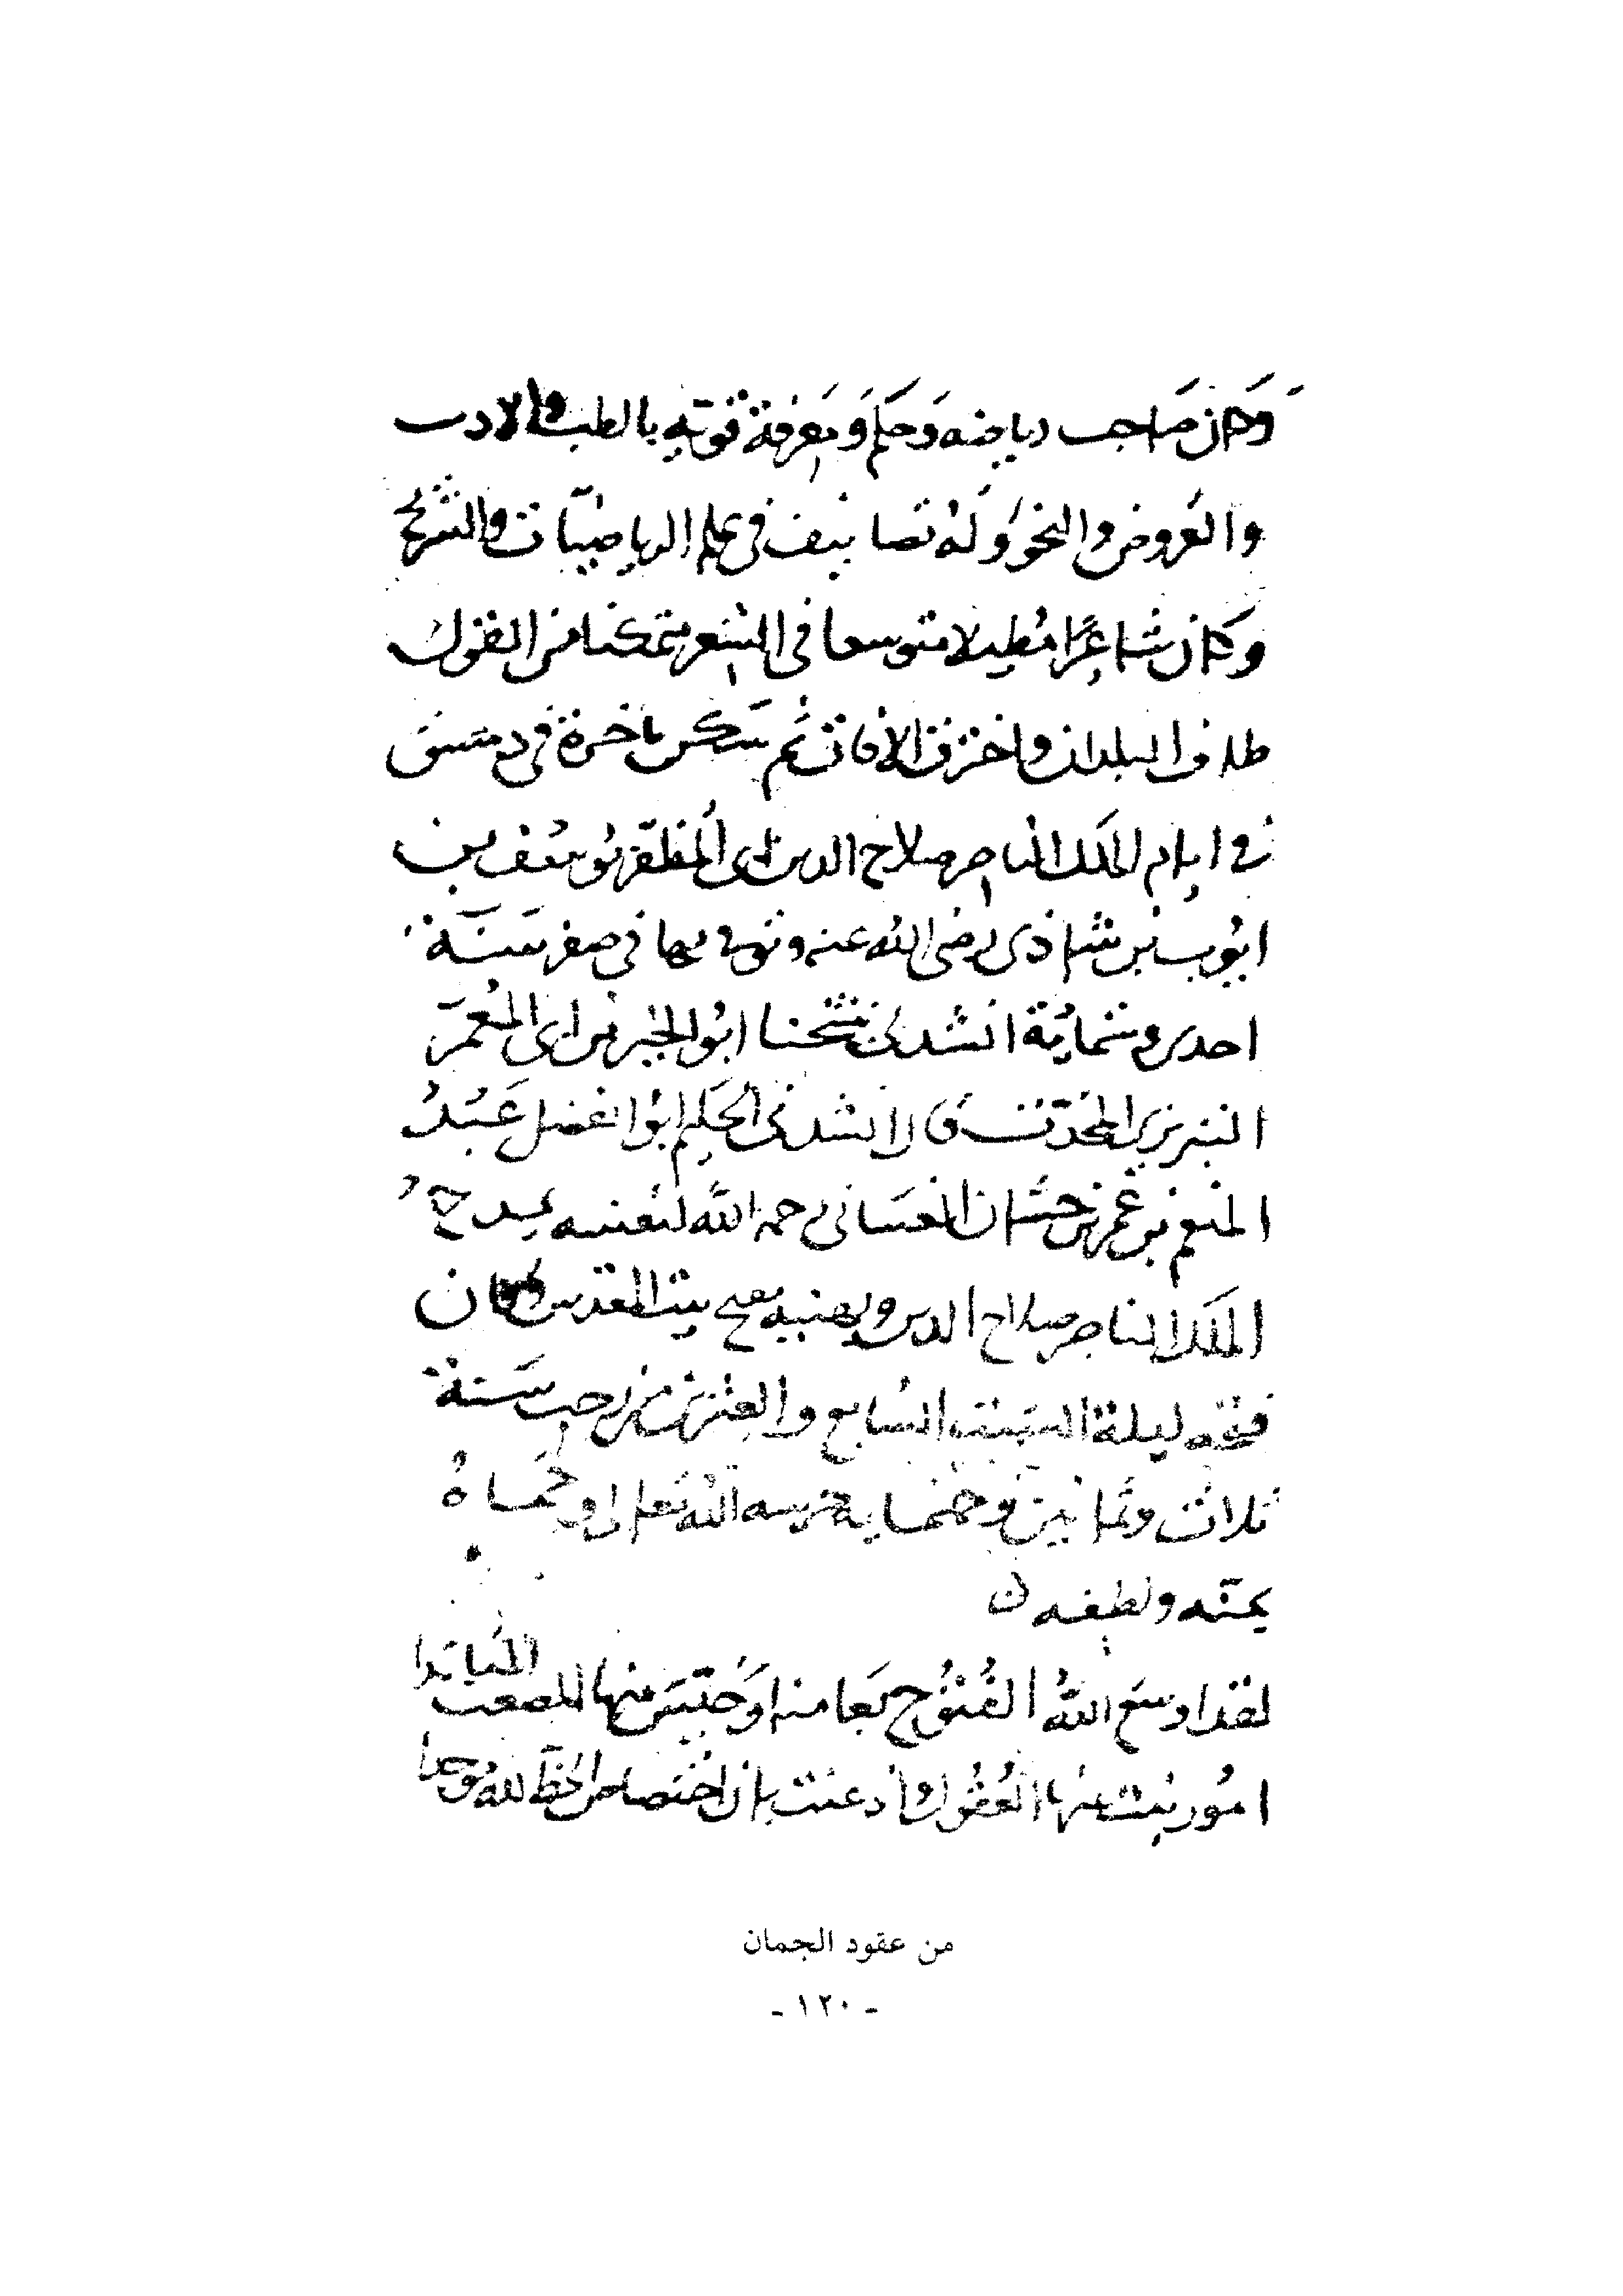 وَكان صَاحب رياضه وَحكم وَ مَعرفة قوته بالطب والادب
والعَروض والنحوُ وَلهُ تصانيف في علم الرياضيّات والشرح
وَكان شاعرًا مُطيلا متوسعا في الشعر متمكنا من القول
طاف البلدان واخترق الافاق ثم سَكن باخرة في دمشق
في ايام الملك الناصر صلاح الدين ابى المُظفّر يوسُف بن
ايوب بن شاذى رضى الله عنه وتوفى بها في صفر سَنَة
احدى وستمائة انشدنى شيخنا ابو الخير بن ابى المُعمّر
التبريزى المحَدّث قال انشدنى الحكيم ابو الفضل عَبْدُ
المنعم بن عُمر بن حسَّان الغسَانى رحمه الله لنفسه يمدح
الملك الناصر صلاح الدين ويهنيه بفتح بيت المقدس وكان
فتحه ليلة السبت السابع والعشرين من رجب سَنة
ثلاث وثمانين وخمسماية حرسه الله تعالى وحمَاهُ
بمنّه ولطفه
لقد اوسعَ اللهُ الفُتُوح لنا منها المصعب
امُور نبت عنها العُقُول واذعنت بان اختصاص الحظ لله
من عقود الجمان
- ١٢٠ -